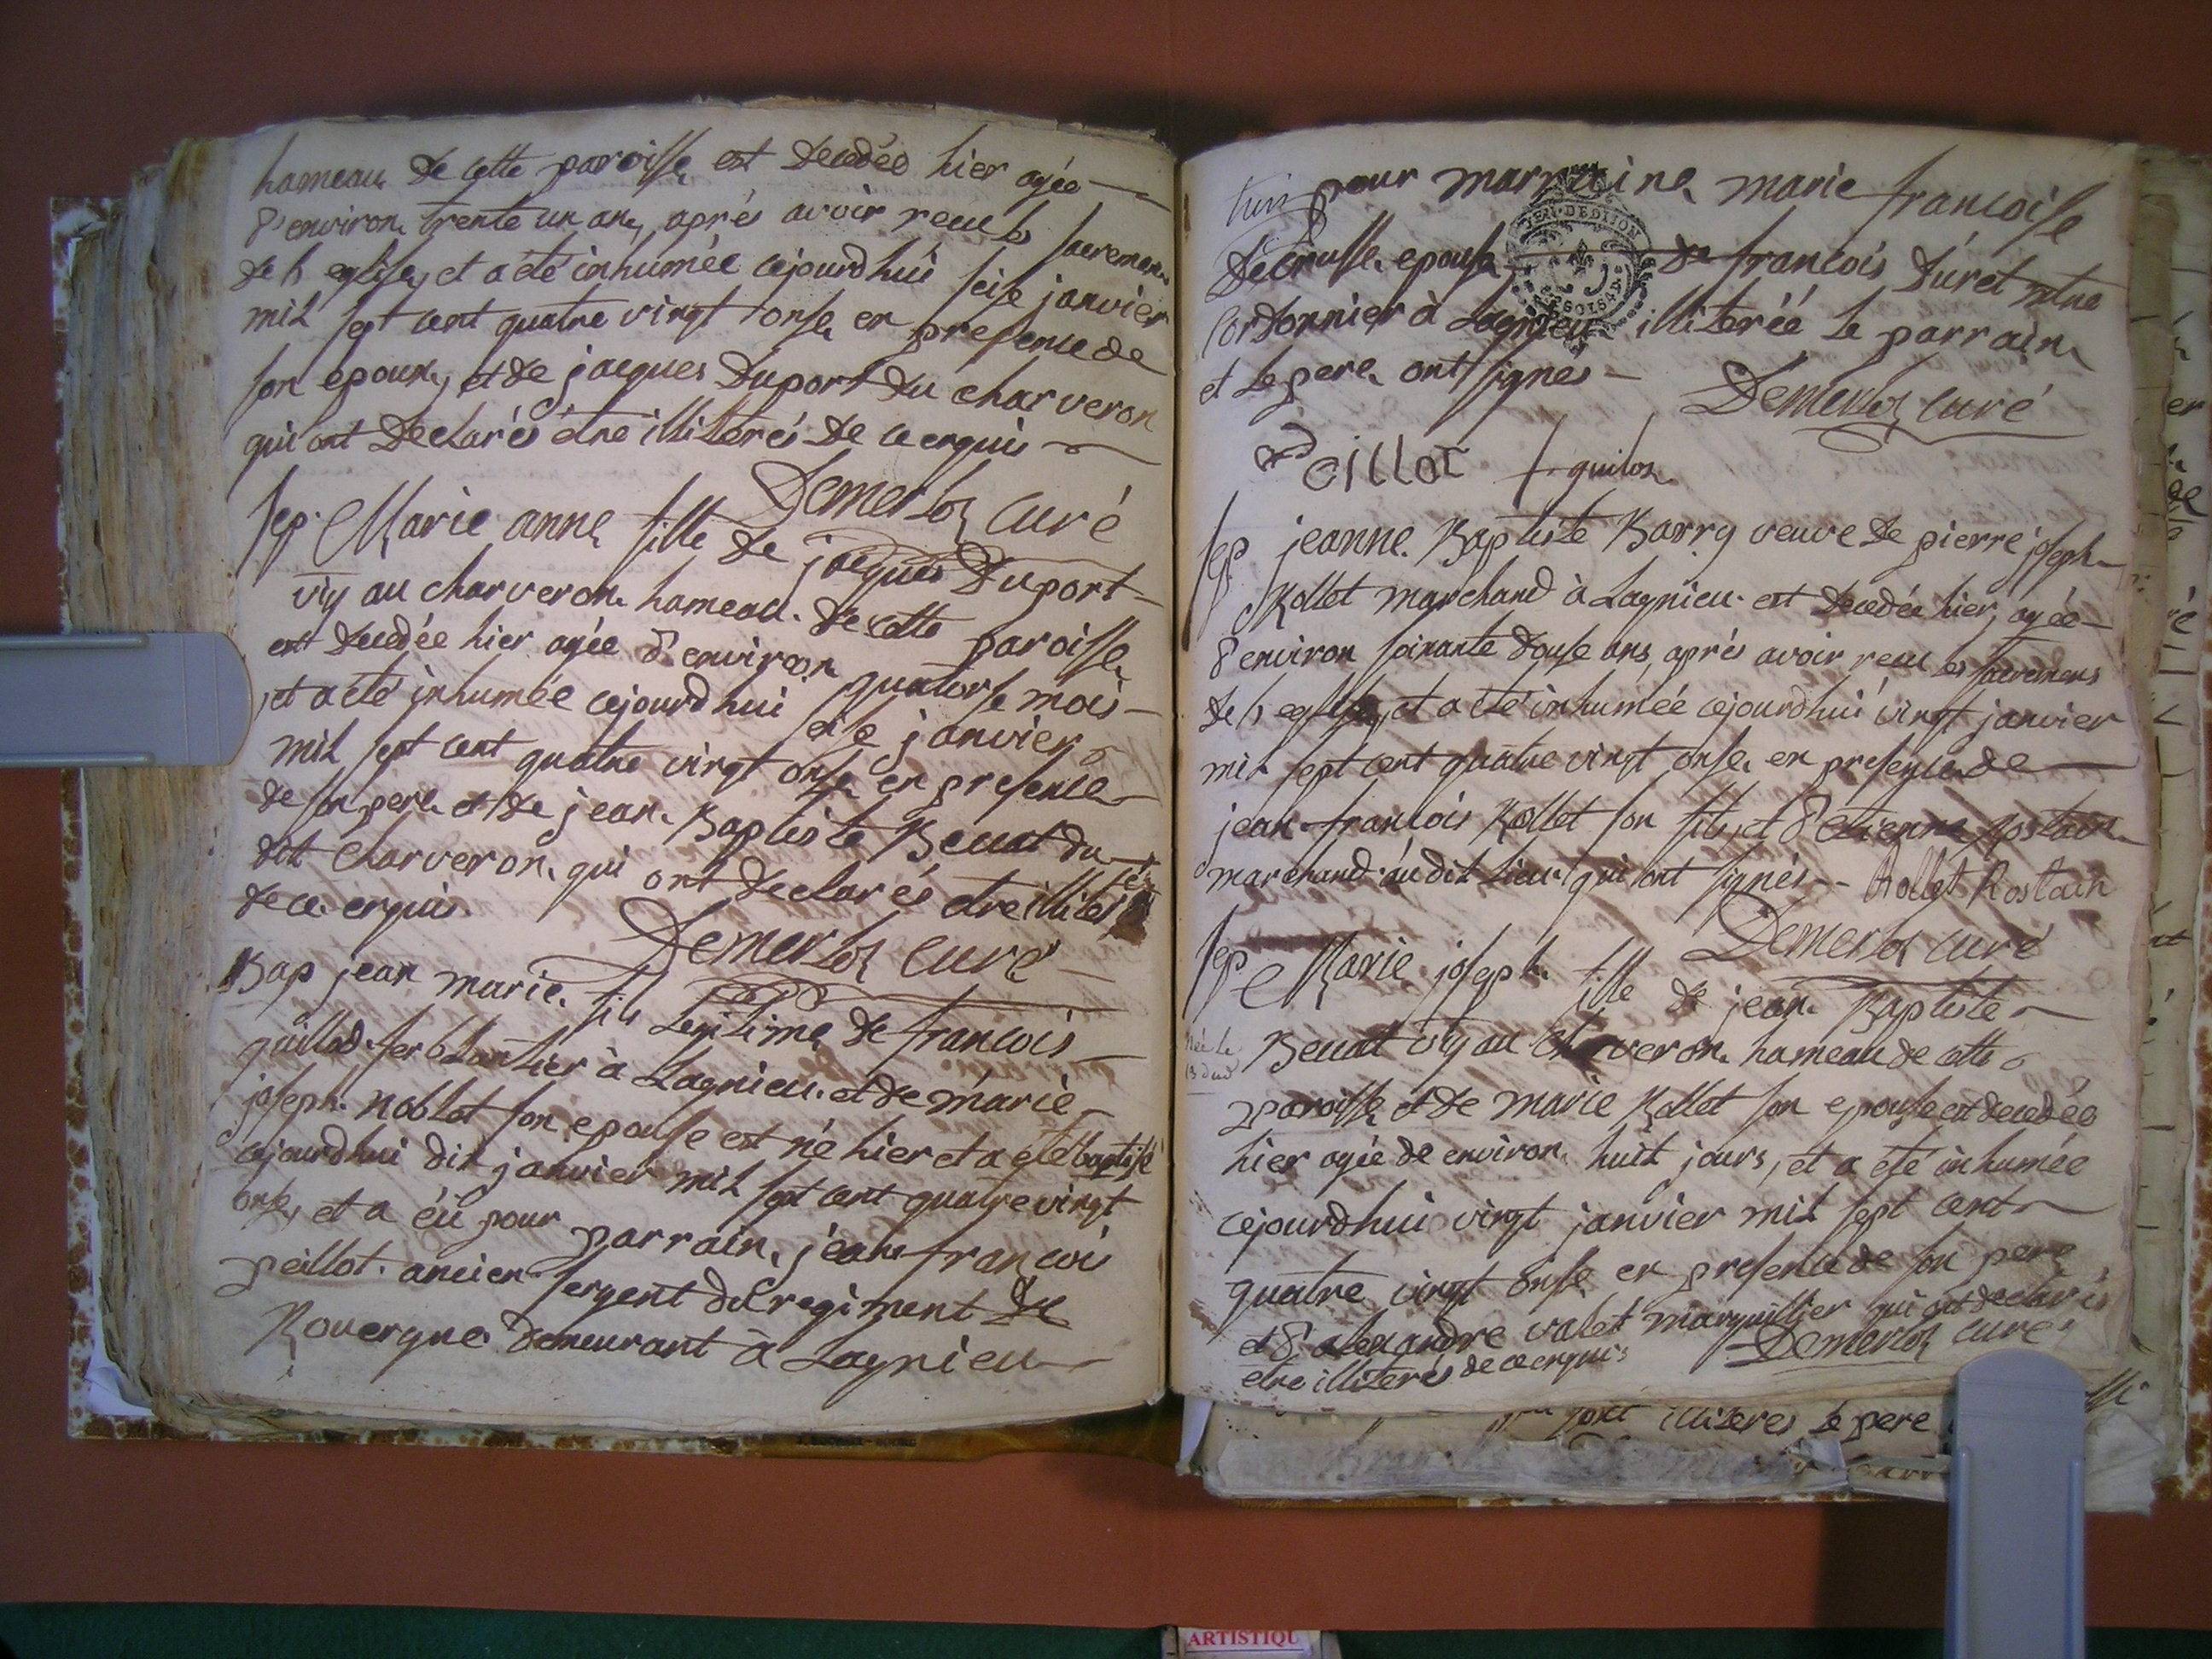 hameau de cette paroisse est decedée hier agée
d'environ trente un ans, aprés avoir recu les sacremens
de l'eglise, et a été inhumée cejourdhui seise janvier
mil sept cent quatre vingt onse en presence de
son epoux, et de jacques Duport du charveron
qui ont declarés être illiterés de ce enquis
Demerloz curé
sep. Marie anne fille de jacques Duport
vig au charveron hameau de cette paroisse
est decedée hier agée d'environ quatorse mois
et a été inhumée cejourdhui janvier
mil sept cent quatre vingt onse en presence
de son pere et de jean Baptiste Benat du
dit charveron qui ont declarés etre illiterés
de ce enquis.
Demerloz curé
Bap jean marie fils legitime de francois
guillod ferblantier à Lagnieu et de marie
joseph noblet son epouse est né hier et a été baptisé
cejourdhui dix janvier mil sept cent quatre vingt
onse, et a éü pour parrain jean francois
peillot ancien sergent du regiment de
Rouergue demeurant à Lagnieu
pour marraine marie francoise
epouse de francois Duret mtre
Cordonnier à Lagnieu illiterée le parrain
et le pere ont signes
Demerloz curé
Peillot f. guilloz
sep. jeanne Baptiste Barry veuve de pierre joseph
Rollet marchand à Lagnieu est decedée hier, agée
d'environ soixante douse ans, aprés avoir recu les sacremens
de l'eglise, et a été inhumée cejourdhui vingt janvier
mil sept cent quatre vingt onse en presence de
jean francois Rollet son fils, et d'etienne Rostain
marchand audit lieu qui ont signés Rollet Rostain
Demerloz curé
sep. Marie joseph fille de jean Baptiste
Benat vig au charveron hameau de cette
née le
13 dud
paroisse et de marie Rollet son epouse est decedée
hier agée de environ huit jours, et a été inhumée
cejourdhui vingt janvier mil sept cent
quatre vingt onse en presence de son pere
et d'alexandre valet marguillier qui ont declarés
etre illiterés de ce enquis Demerloz curé
sont illiteres le pere
ARTISTIQU